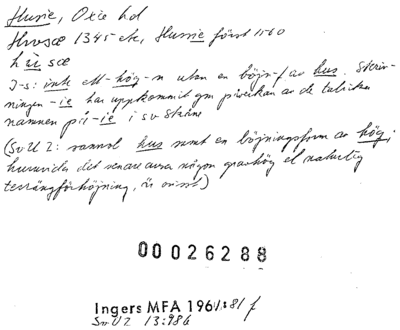 Husie, Oxie hd
Hwsæ 1345 etc, Husie först 1560
hùsæ
J-s: inte ett -hög-n utan en böjn.f. av hus. Skriv-
ningen -ie har uppkommit gm påverkan av de talrika
namnen på -ie i sv Skåne
(SvU 2: sannol hus samt en böjningsform av hög;
huruvida det senare avser någon gravhög el naturlig
terrängförhöjning, är ovisst)
00026288
Ingers MFA 1961:81 f
SvU2 13:986